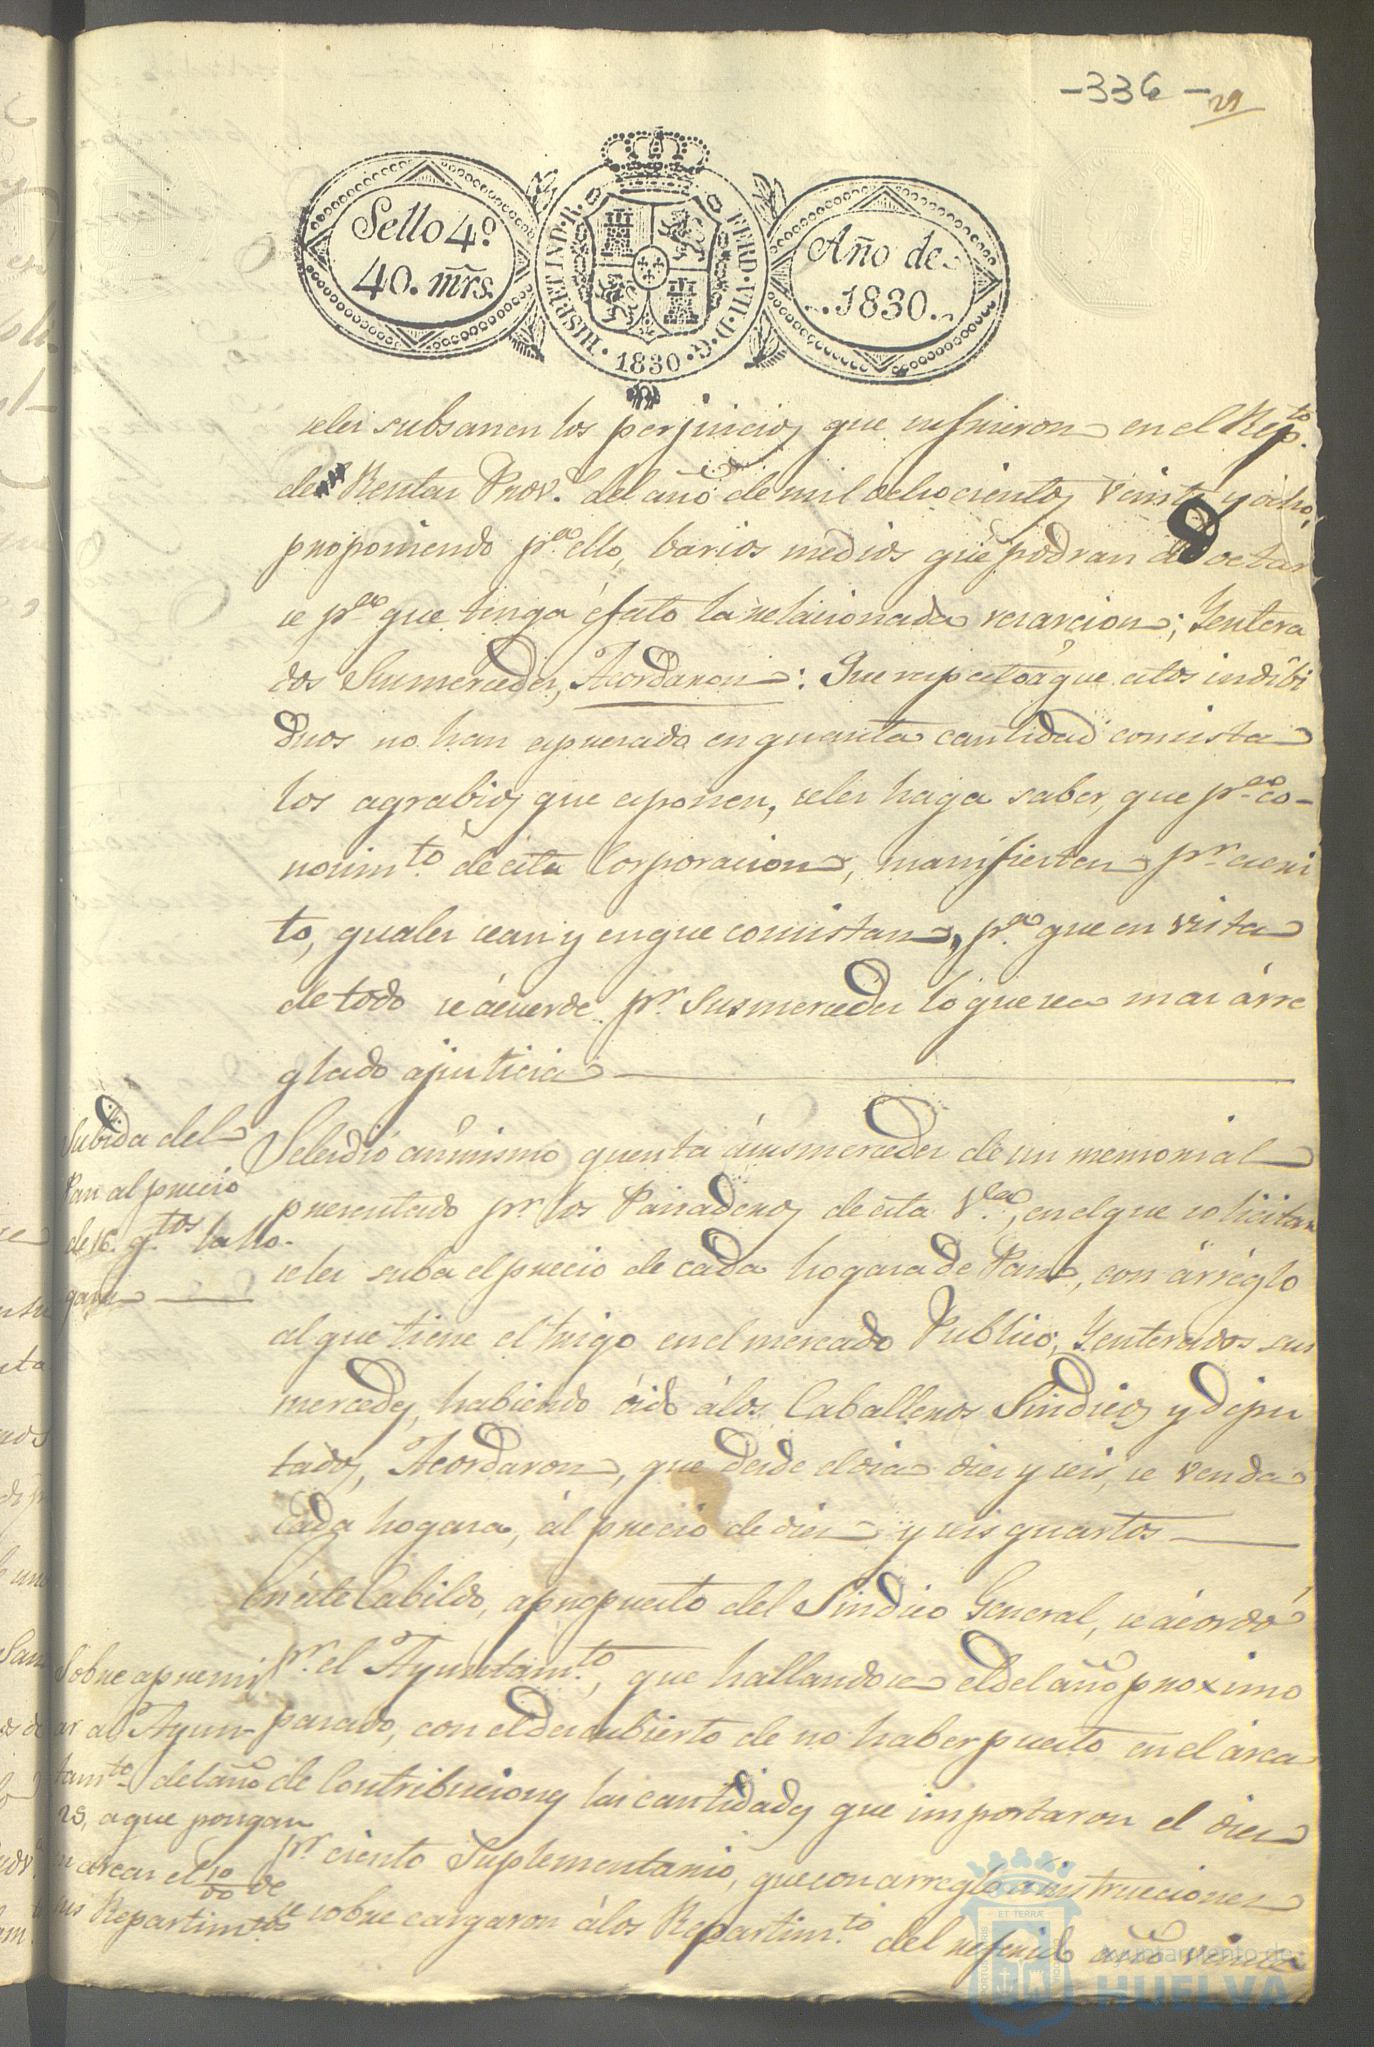 -336-
29
Sello 4º
40. mrs.
HISP. ET IND. R.
FERD. VII. D. G.
1830
Año de
1830
seles subsanen los perjuicios que sufrieron en el Rep.to
de Rentas Prov.s del año de mil ochocientos veinte y ocho,
proponiendo p.a ello, barios medios que podran adoctar
se p.a que tenga efecto la relacionada; Yentera
dos Susmercedes, Acordaron: Que respecto aque estos indibi
duos no han expresado en quanta cantidad consista
los agrabios que esponen, seles haga saber, que p.a co-
nocim.to de esta Corporacion, manifiesten p.r escri
to, quales sean y enque consistan, p.a que en vista
de todo se ácuerde p.r Susmercedes lo que sea mas árre
glado ajusticia
Subida del
Pan al precio
de 16. q.tos la ho-
gaza
Seledió asimismo quenta ásusmercedes de un memorial
presentado p.r los Panaderos de esta V.a, en el que solicitan
seles suba el precio de cada hogaza de Pan, con árréglo
al que tiene el trigo en el mercado Publico, Yenterados sus
mercedes, habiendo óido álos Caballeros Sindicos y dipu
tados, Acordaron, que desde el dia diez y seis, se venda
Cada hogaza, ál precio de diez y seis quartos
En éste Cabildo, apropuesto del Sindico General, se ácordó
p.r el Ayuntam.to, que hallandose el del año proximo
pasado, con el descubierto de no haber puesto en el árca
de Contribuciones las cantidades que importaron el diez
p.r ciento Suplementario, que con arreglo a instrucciones
se sobre cargaron álos Repartim.to del referido año veinte
Sobre apremi
ar al Ayun-
tam.to del año
29, a que pongan
en arcas el 10/00 de
sus Repartim.tos
ET TERRÆ
Ayuntamiento de
HUELVA